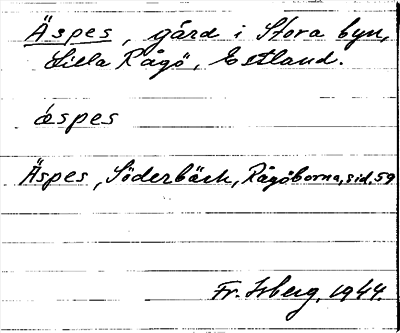 Äspes, gård i Stora byn,
Lilla Rågö, Estland.
æspes
Äspes, Söderbäck, Rågöborna, sid. 59
Fr. Isberg, 1944.